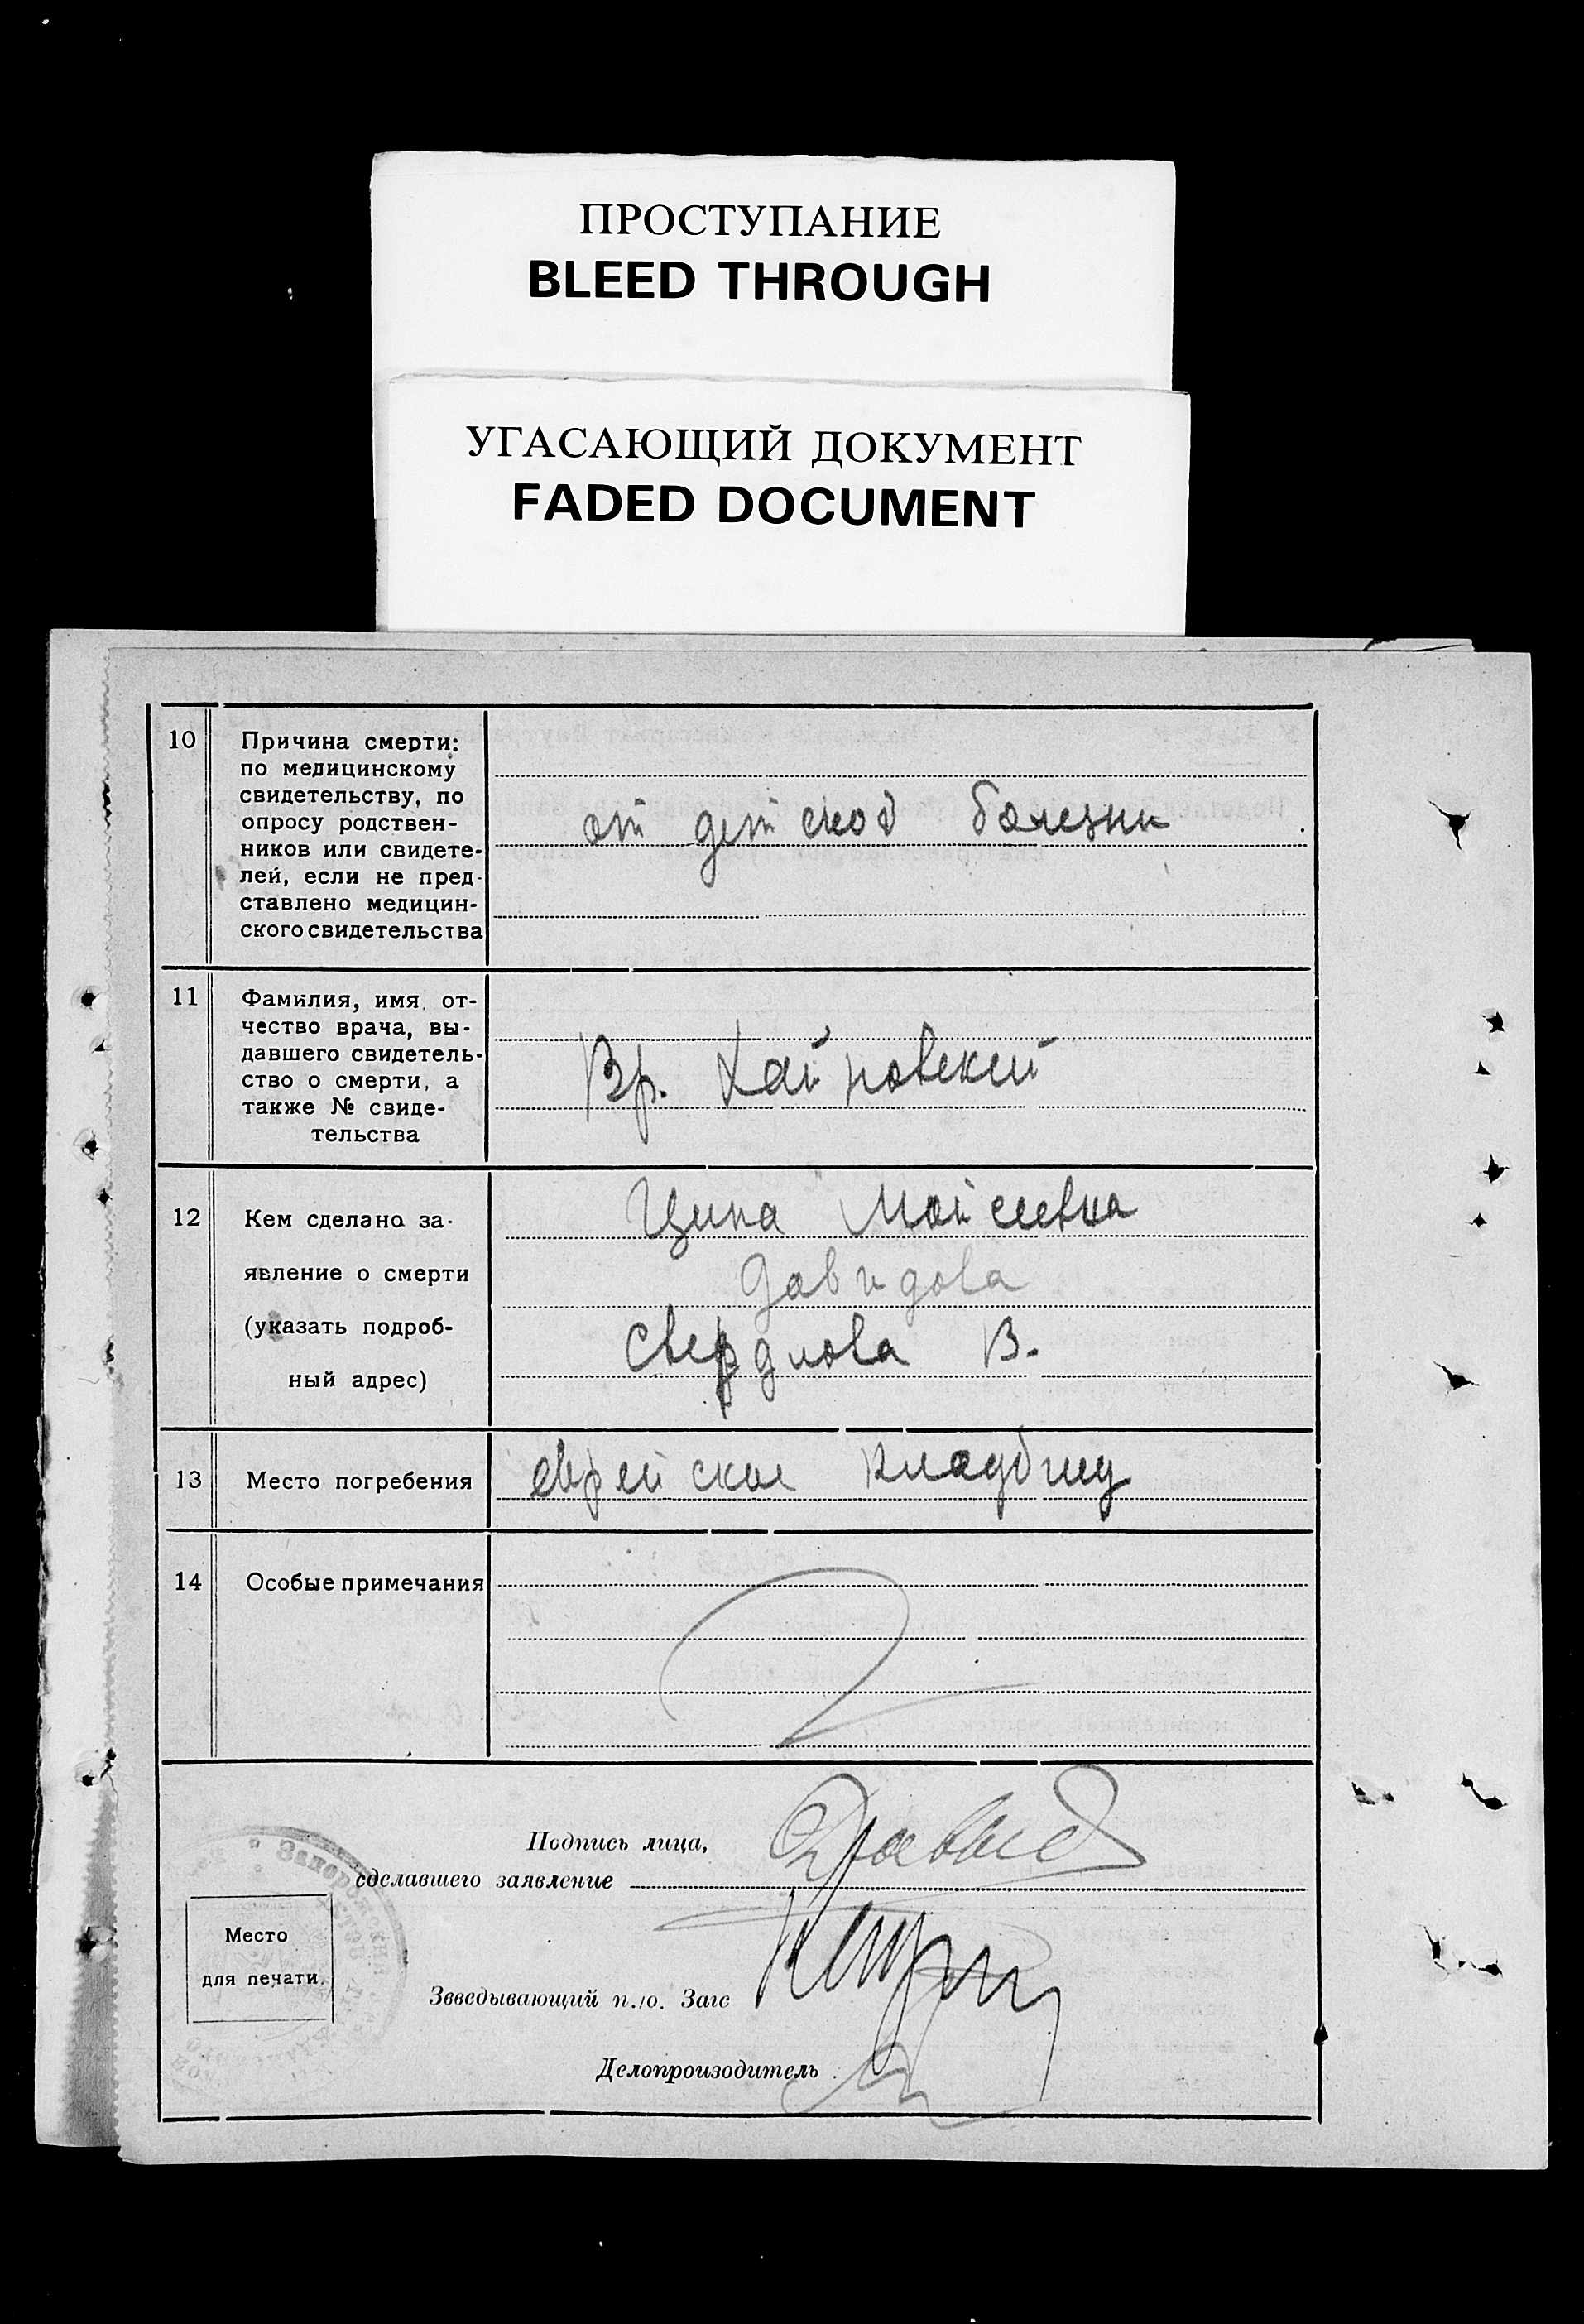 ПРОСТУПАНИЕ
BLEED THROUGH
УГАСАЮЩИЙ ДОКУМЕНТ
FADED DOCUMENT
10
Причина смерти:
по медицинскому
свидетельству, по
опросу родствен-
ников или свидете-
лей, если не пред-
ставлено медицин-
ского свидетельства
от детской болезни
11
Фамилия, имя, от-
чество врача, вы-
давшего свидетель-
ство о смерти, а
также № свиде-
тельства
Вр. Хайновский
12
Кем сделано за-
явление о смерти
(указать подроб-
ный адрес)
Ципа Мойсеевна
Давидова
Свердлова В.
13
Место погребения
еврейское кладбищ
14
Особые примечания
Подпись лица,
сделавшего заявление
Место
для печати.
Зведывающий п./о. Загс
Делопроизодитель